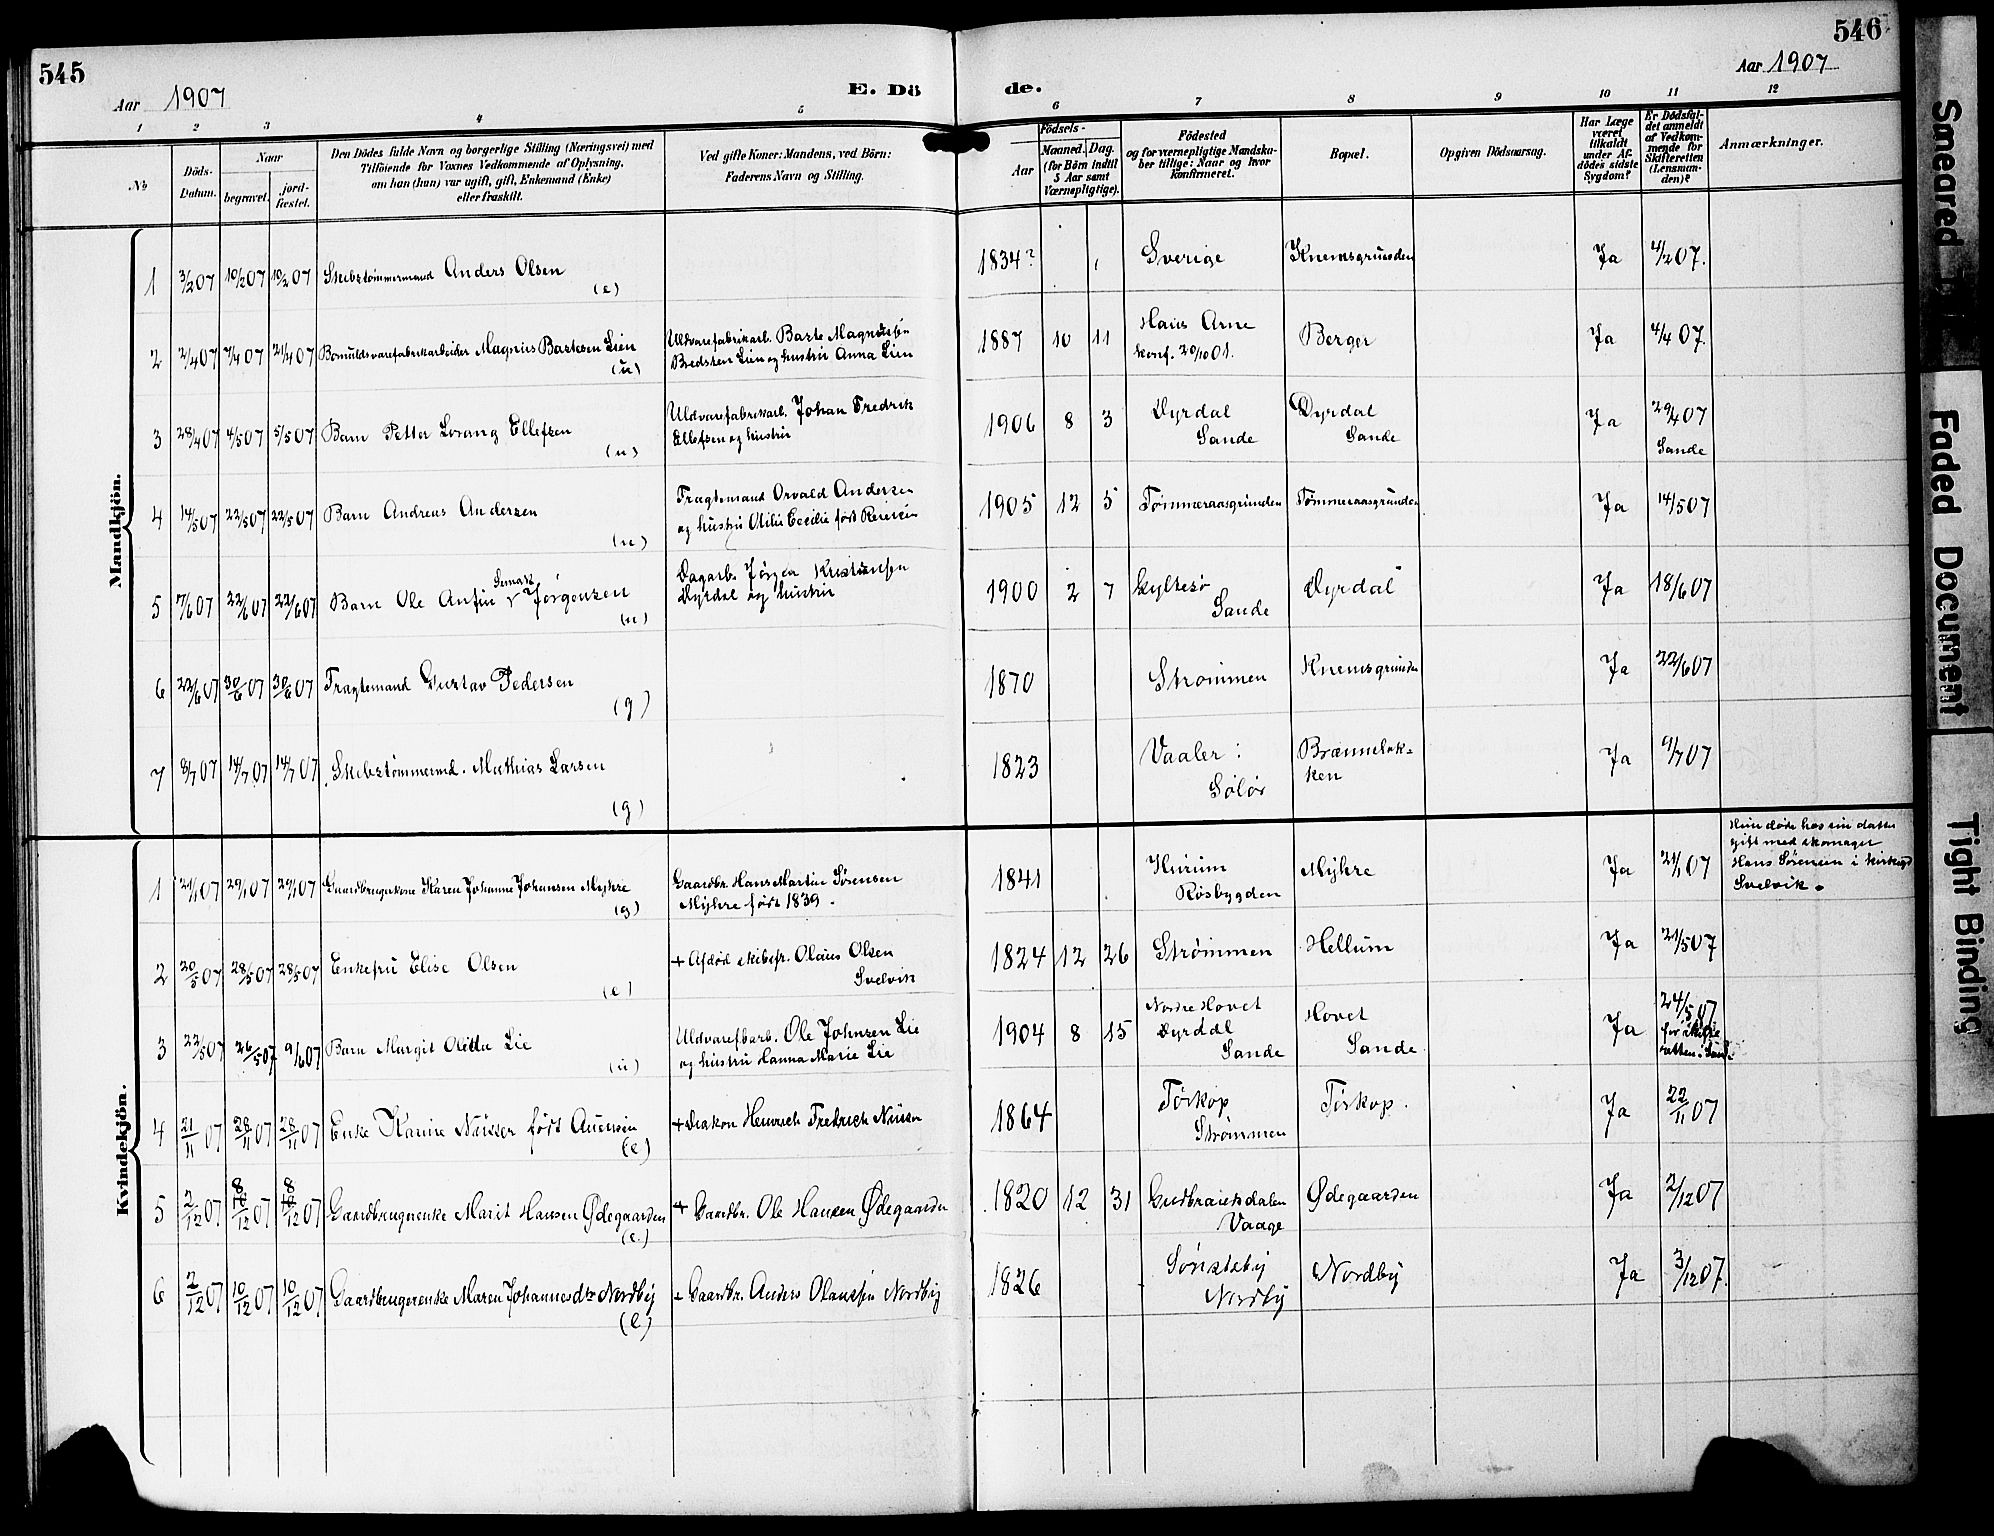 545
Aar 1907
E. Dö
de.
546
Aar 1907
1 2 3 4 5 6 7 8 9 10 11 12
No
Döds-
Datum.
Naar
begravet.
jord-
fæstet.
Den Dödes fulde Navn og borgerlige Stilling (Næringsvei) med
Tilföiende for Voxnes Vedkommende af Oplysning,
om han (hun) var ugift, gift, Enkemand (Enke)
eller fraskilt.
Ved gifte Koner: Mandens, ved Börn:
Faderens Navn og Stilling.
Födsels-
Aar
Maaned. Dag.
(for Börn indtil
5 Aar samt
Værnepligtige).
Födested
og for værnepligtige Mandska-
ber tillige: Naar og hvor
konfirmeret.
Bopæl.
Opgiven Dödsaarsag.
Har Læge
været
tilkaldt
under Af-
dödes sidste
Sygdom?
Er Dödsfal-
det anmeldt
af Vedkom-
mende for
Skifteretten
(Lensman-
den)?
Anmærkninger.
Mandkjön.
1 3/2 07 10/2 07 10/2 07 Skibstömmermand Anders Olsen
(e)
1834? Sverige Knemsgrunden Ja 4/2 07.
2 2/4 07 7/4 07 21/4 07 Bomuldsvarefabrikarbeider Magnus Bartesen Lien
(u)
Uldvarefabrikarb. Barte Magnussen
Bredsten Lien og hustru Anna Lien
1887 10 11 Hans Arne
konf. 20/10 01.
Berger Ja 4/4 07.
3 28/4 07 4/5 07 5/5 07 Barn Petter Lorang Ellefsen
(u)
Uldvarefabrikarb. Johan Fredrik
Ellefsen og hustru
1906 8 3 Dyrdal
Sande
Dyrdal
Sande
Ja 29/4 07
Sande
4 14/5 07 22/5 07 22/5 07 Barn Andreas Andersen
(u)
Fragtemand Orvald Andersen
og hustru Otilie Cecilie født
1905 12 5 Tømmeraasgrunden Tømmeraasgrunden Ja 14/5 07
5 7/6 07 22/6 07 22/6 07 Barn Ole Anfin Jørgensen
(u)
Dagarb. Jørgen Kristiansen
Dyrdal og hustru
1900 2 7
Sande
Dyrdal Ja 18/6 07
6 22/6 07 30/6 07 30/6 07 Fragtemand Gustav Pedersen
(g)
1870 Strømmen Knemsgrunden Ja 22/6 07
7 8/7 07 14/7 07 14/7 07 Skibstömmermd. Mathias Larsen
(g)
1823 Vaaler :
Sølør
Brænneløk-
ken
Ja 9/7 07
Kvindekjön.
1 21/1 07 29/1 07 29/1 07 Gaardbrugerkone Karen Johanne Johansen Myhre
(g)
Gaardbr. Hans Martin Sørensen
Myhre født 1839.
1841 Hurum
Røsbygden
Myhre Ja 21/1 07
Hun døde hos sin datter
gift med skomager
Hans Sørensen i
Svelvik.
2 20/5 07 28/5 07 28/5 07 Enkefru Elise Olsen
(e)
+ Afdød skibsfr. Olaus Olsen
Svelvik
1824 12 26 Strømmen Hellum Ja 21/5 07
3 22/5 07 26/5 07 9/6 07 Barn Margit Otilie Lie
(u)
Uldvarefbarb. Ole Johnsen Lie
og hustru Hanna Marie Lie
1904 8 15 Nordre Hovet
Dyrdal
Sande
Hovet
Sande
Ja 24/5 07
for skifte
retten i Sande
4 21/11 07 28/11 07 28/11 07 Enke Karine Nusser født Auensen
(e)
+ Diakon Heinrich Fredrich Nusser
1864 Tørkop
Strømmen
Tørkop. Ja 22/11 07
5 2/12 07 8/12 07 8/12 07 Gaardbrugerenke Marit Hansen Ødegaarden
(e.)
+ Gaardbr. Ole Hansen Ødegaarden
1820 12 31 Gudbrandsdalen
Vaage
Ødegaarden Ja 2/12 07
6 2/12 07 10/12 07 10/12 07 Gaardbrugerenke Maren Johannesdr Nordby
(e)
+ Gaardbr. Anders Olaussen Nordby
1826 Sønsteby
Nordby
Nordby Ja 3/12 07.
Smeared
Faded Document
Tight Binding